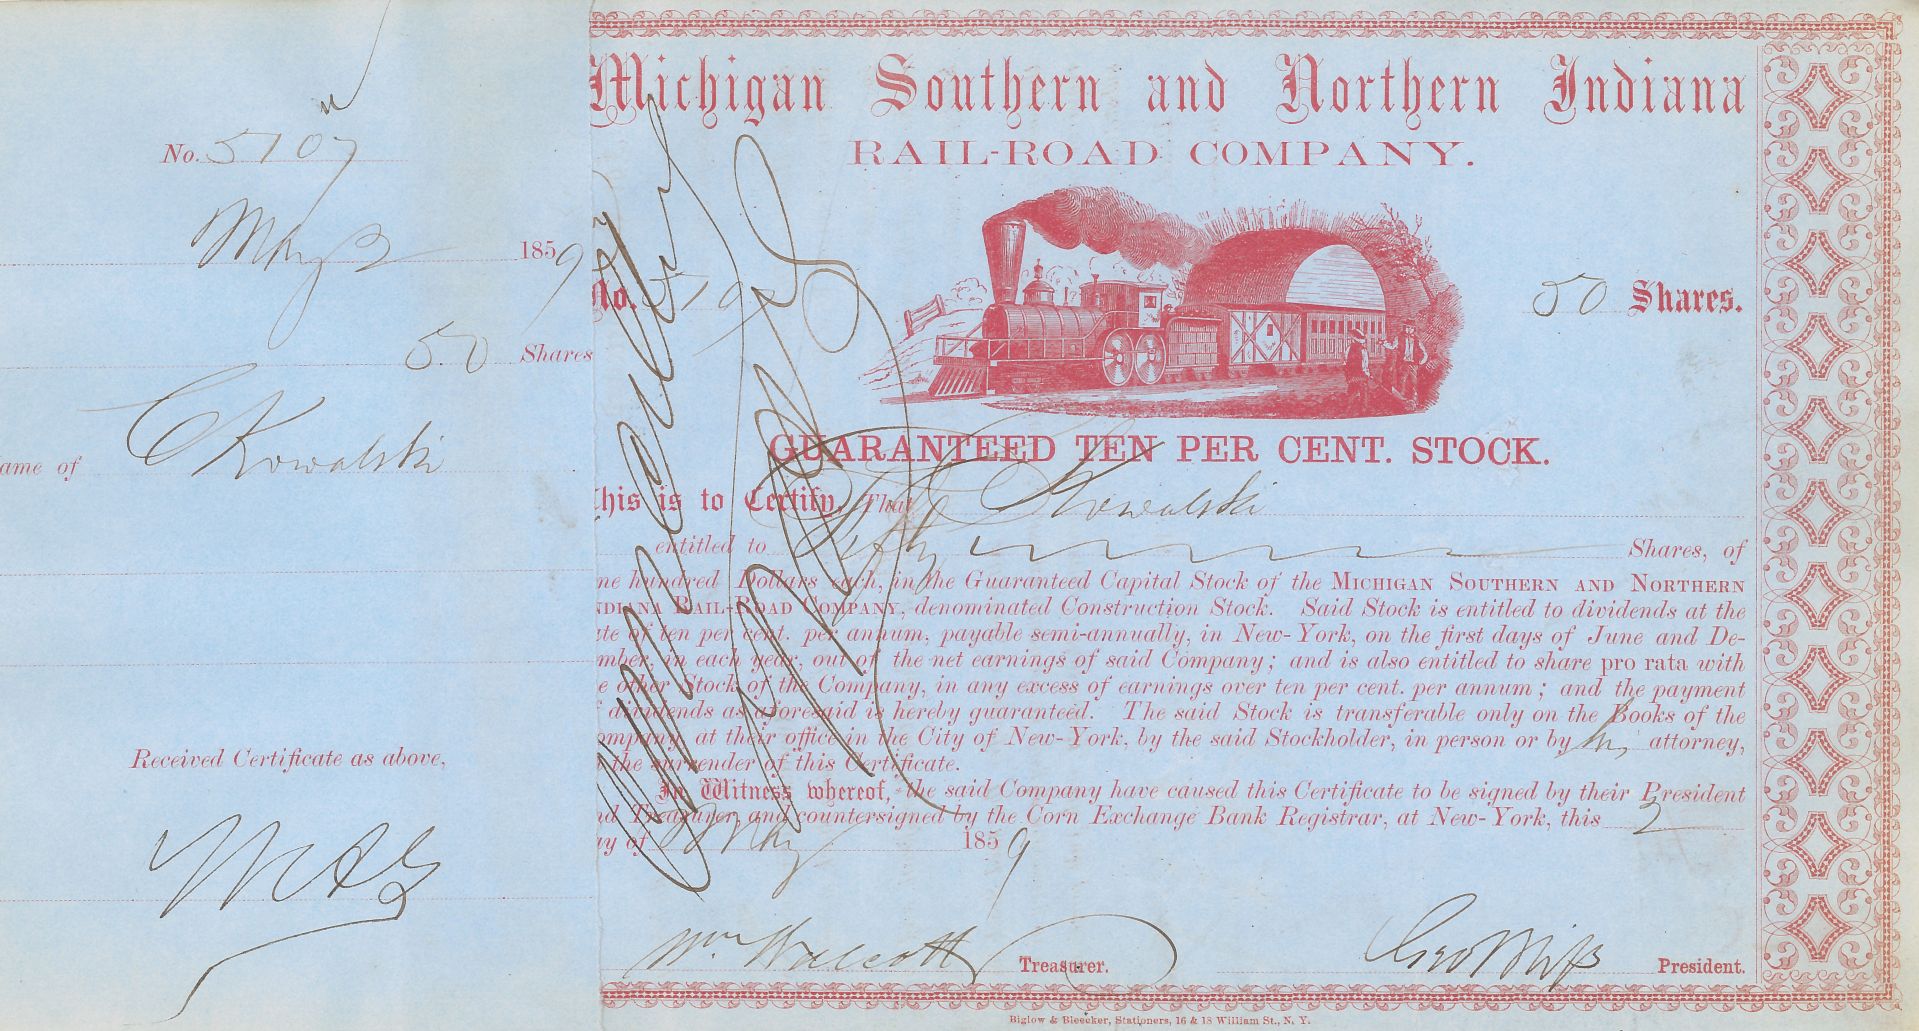 No. 5107
May 2 1859
50 Shares
ame of C Kowalski
Received Certificate as above,
Michigan Southern and Northern Indiana
RAIL-ROAD COMPANY.
No. 5107
50 Shares.
GUARANTEED TEN PER CENT. STOCK.
This is to Certify, That C Kowalski
entitled to Fifty Shares, of
ne hundred Dollars each, in the Guaranteed Capital Stock of the MICHIGAN SOUTHERN AND NORTHERN
NDIANA RAIL-ROAD COMPANY, denominated Construction Stock. Said Stock is entitled to dividends at the
ate of ten per cent. per annum, payable semi-annually, in New-York, on the first days of June and De-
mber, in each year, out of the net earnings of said Company; and is also entitled to share pro rata with
e other Stock of the Company, in any excess of earnings over ten per cent. per annum; and the payment
f dividends as aforesaid is hereby guaranteed. The said Stock is transferable only on the Books of the
ompany, at their office in the City of New-York, by the said Stockholder, in person or by his attorney,
the surrender of this Certificate.
In Witness whereof, the said Company have caused this Certificate to be signed by their President
nd Treasurer and countersigned by the Corn Exchange Bank Registrar, at New-York, this 2
ay of May 1859
Wm Walcott Treasurer.
Geo Bliss President.
Biglow & Bleecker, Stationers, 16 & 18 William St., N. Y.